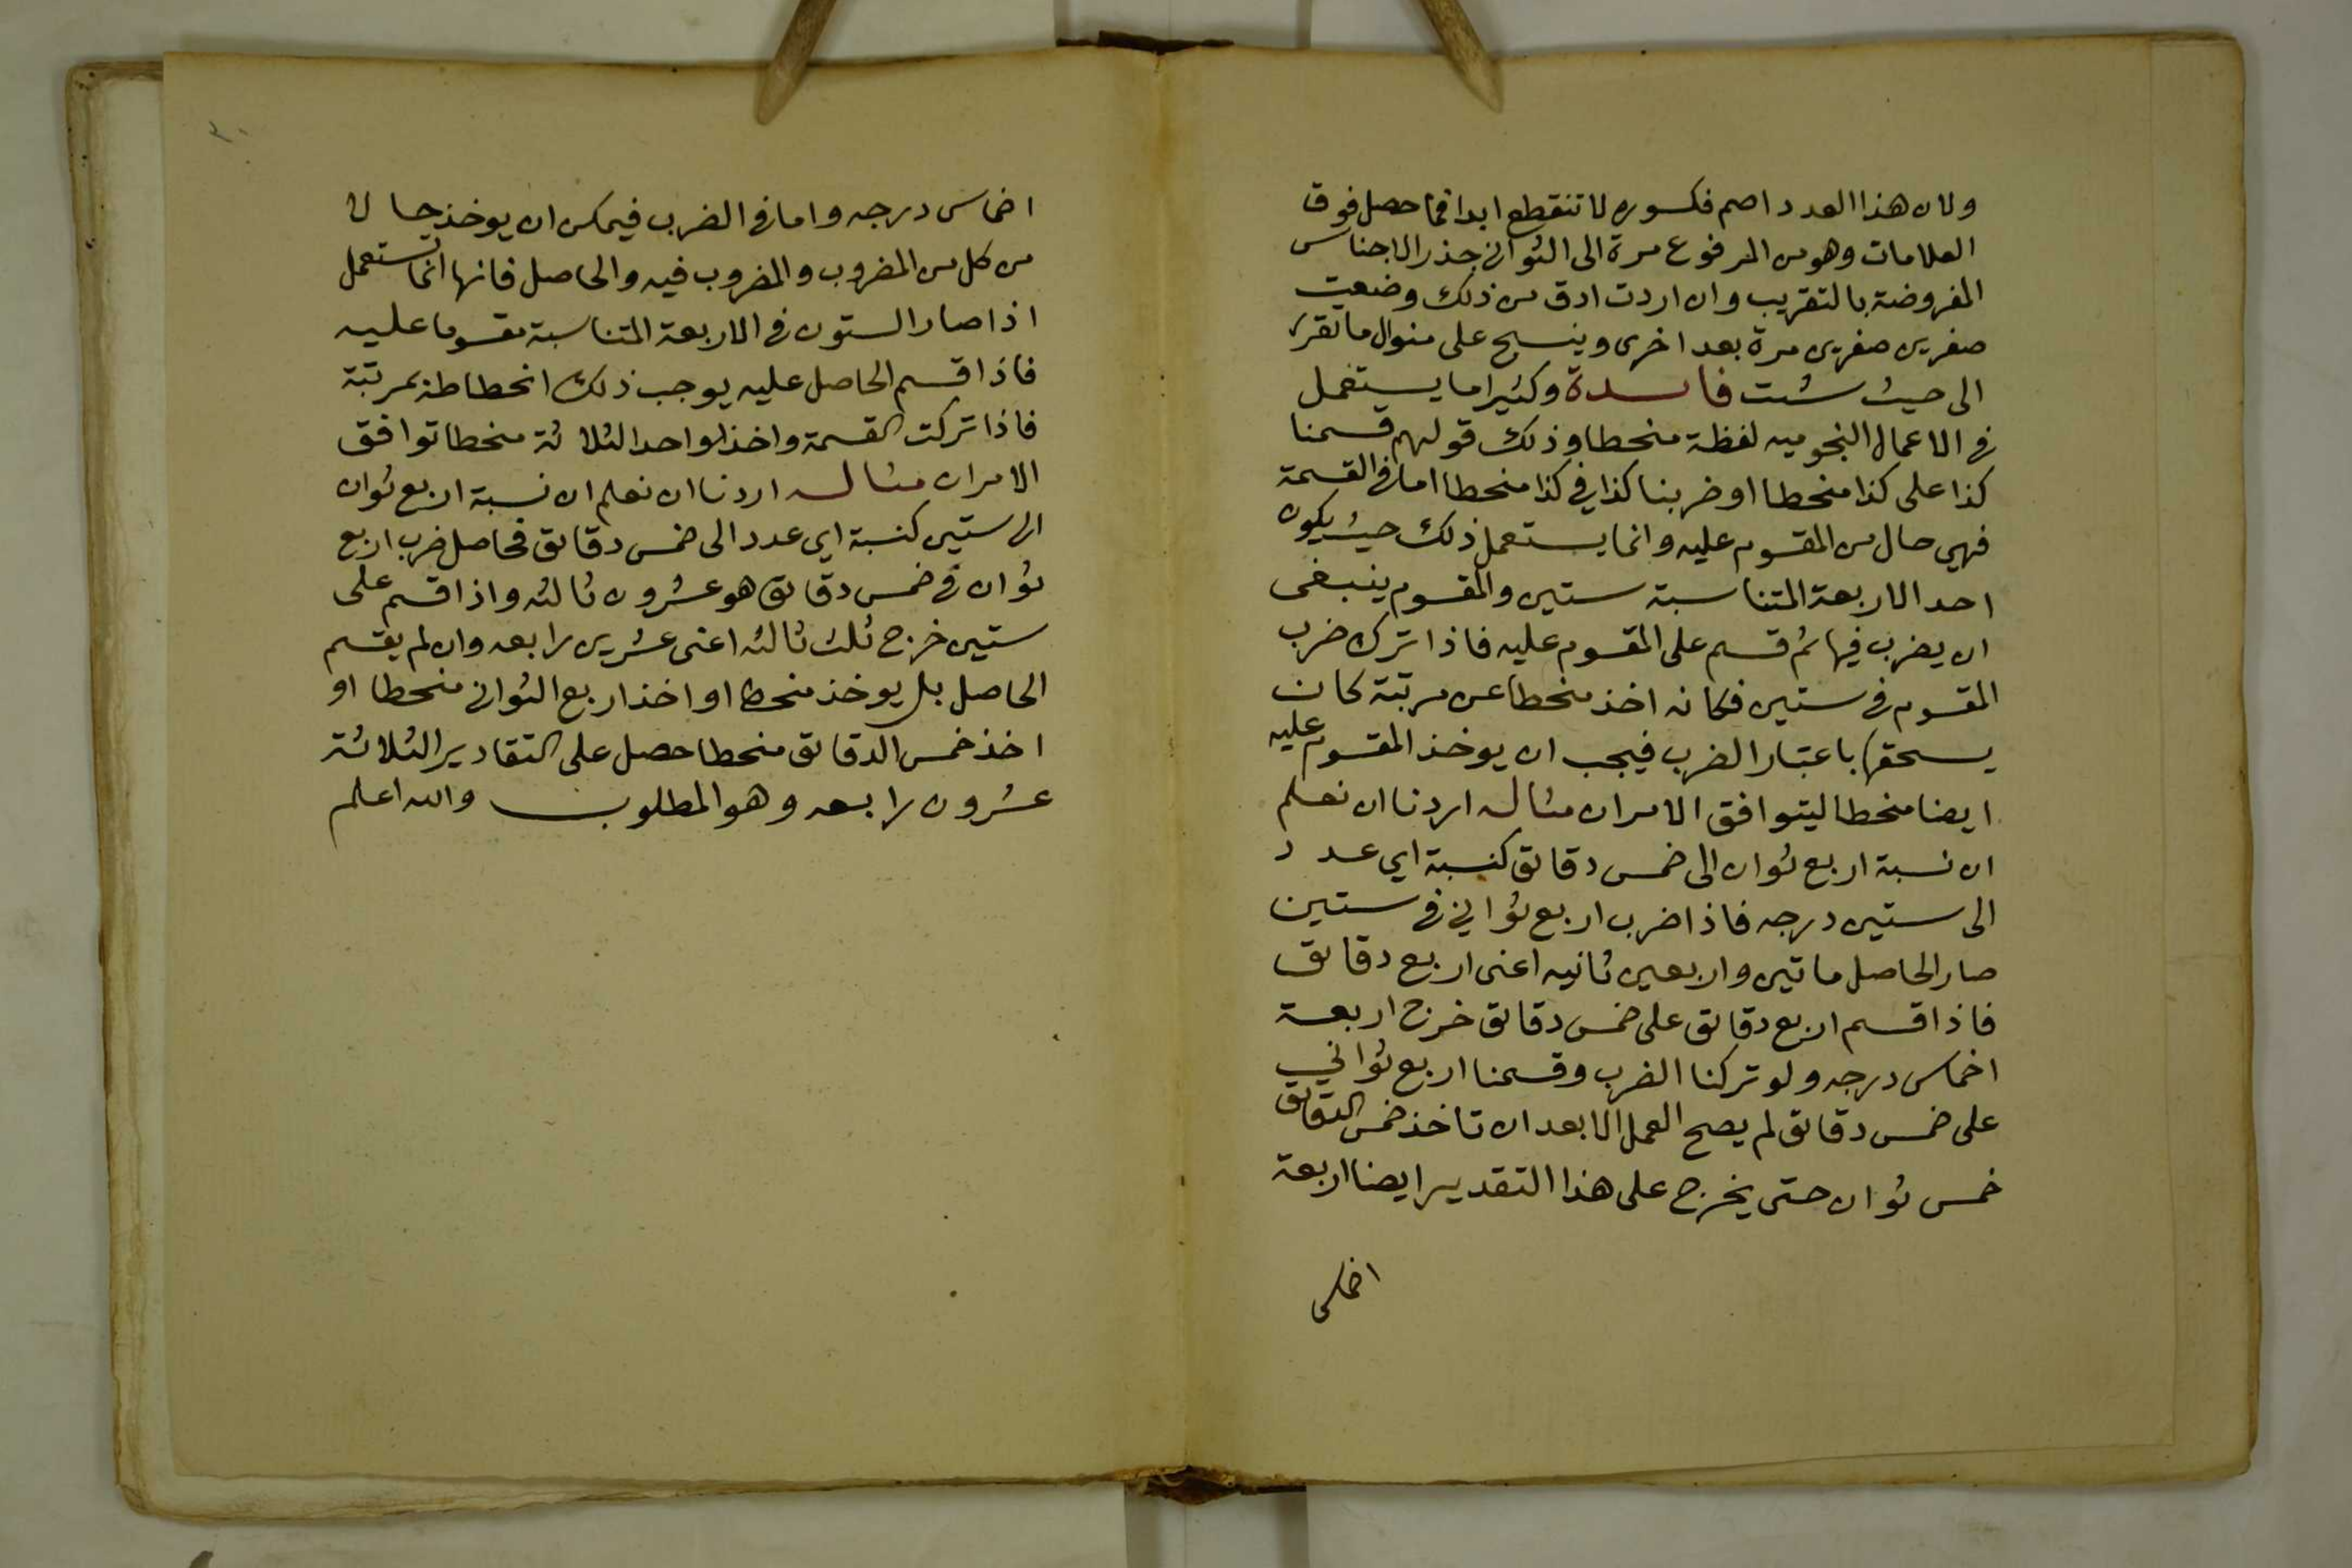 ولان هذا العدد اصم فكسوره لا تنقطع ابدا فما حصل فوق
العلامات وهو من المرفوع مرة الى الثواني جذر الاجناس
المفروضة بالتقريب وان اردت ادق من ذلك وضعت
صفرين صفرين مرة بعد اخرى وينسج على منوال ما تقرر
الى حيث شئت فاىدة وكثيرا ما يستعمل
في الاعمال النجوميه لفظة منحطا وذلك قولهم قسمنا
كذا على كذا منحطا او ضربنا كذا في كذا منحطا اما في القسمة
فهي حال من المقسوم عليه وانما يستعمل ذلك حيث يكون
احد الاربعة المتناسبة ستين والمقسوم ينبغى
ان يضرب فيها ثم قسم على المقسوم عليه فاذا ترك ضرب
المقسوم في ستين فكانه اخذ منحطا عن مرتبة كان
يستحقها باعتبار الضرب فيجب ان يوخذ المقسوم عليه
ايضا منحطا ليتوافق الامران مثاله اردنا ان نعلم
ان نسبة اربع ثوان الى خمس دقايق كنسبة اي عدد
الى ستين درجه فاذا ضرب اربع ثواني في ستين
صار الحاصل ماتين واربعين ثانيه اعنى اربع دقايق
فاذا قسم اربع دقايق على خمس دقايق خرج اربعة
اخماس درجه ولو تركنا الضرب وقسمنا اربع ثواني
على خمس دقايق لم يصح العمل الا بعد ان تاخذ خمس الدقايق
خمس ثوان حتى يخرج على هذا التقدير ايضا اربعة
اخماس
٣٠
اخماس درجه واما في الضرب فيمكن ان يوخذ حالا
من كل من المضروب والمضروب فيه والحاصل فانها انما تستعمل
اذا صار الستون في الاربعة المتناسبة مقسوما عليه
فاذا قسم الحاصل عليه يوجب ذلك انحطاطه بمرتبة
فاذا تركت القسمة واخذ الواحد الثلاثة منحطا توافق
الامران مثاله اردنا ان نعلم ان نسبة اربع ثوان
الى ستين كنسبة اي عدد الى خمس دقايق فحاصل ضرب اربع
ثوان في خمس دقايق هو عشرون ثالثه واذا قسم على
ستين خرج ثلث ثالثه اعنى عشرين رابعه وان لم يقسم
الحاصل بل يوخذ منحطا او اخذ اربع الثواني منحطا او
اخذ خمس الدقايق منحطا حصل على التقادير الثلاثة
عشرون رابعه وهو المطلوب والله اعلم